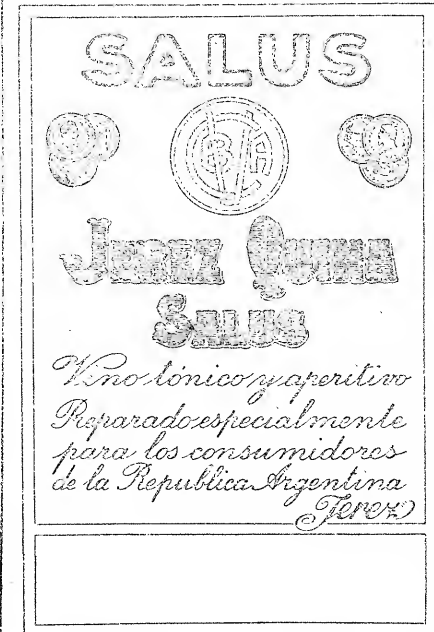 SALUS
JEREZ QUINA
SALUS
Vino tónico y aperitivo
Preparado especialmente
para los consumidores
de la Republica Argentina
Jerez